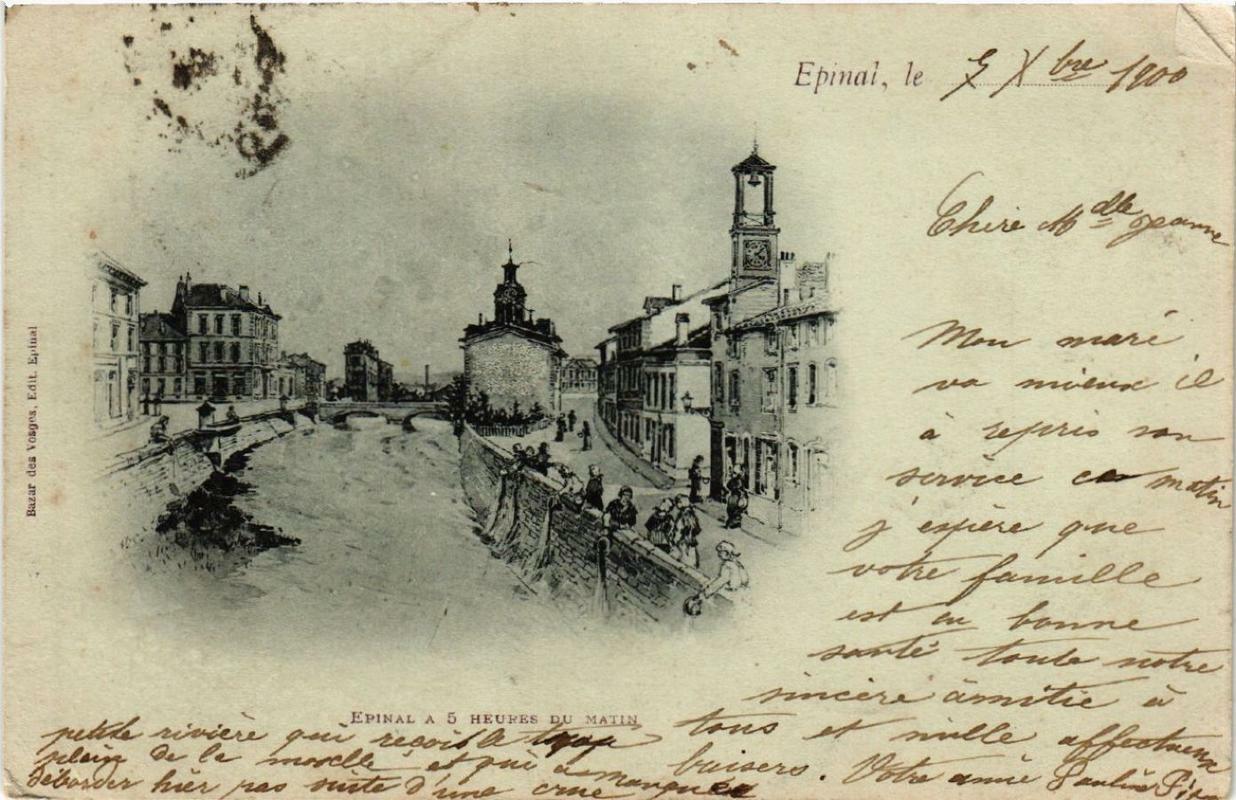 Epinal, le 5 Xbre 1900
Chère Mdlle Jeanne
Mon mari
va mieux il
à repris son
service ce matin
j'espère que
votre famille
est en bonne
santé toute notre
sincère âmitié à
tous et mille affectueux
baisers. Votre amie Pauline
EPINAL A 5 HEURES DU MATIN
petite rivière qui reçois le trop
plein de la moselle et qui à manquée
déborder hier par suite d'une crue
Bazar des Vosges, Edit. Epinal